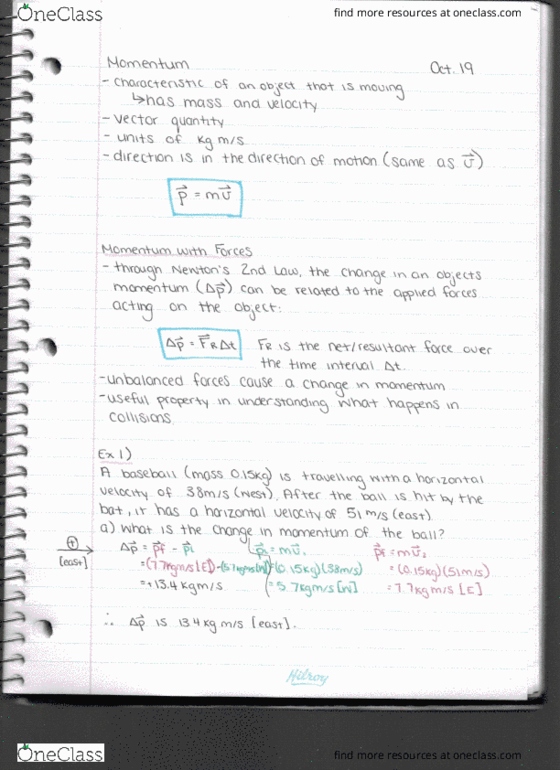 OneClass
find more resources at oneclass.com
Momentum
Oct. 19
- characteristic of an object that is moving
↳ has mass and velocity
- vector quantity
- units of kg m/s
- direction is in the direction of motion (same as v⃗)
p⃗ = mv⃗
Momentum with Forces
- through Newton's 2nd Law, the change in an objects
momentum (Δp⃗) can be related to the applied forces
acting on the object:
Δp⃗ = F⃗RΔt
FR is the net/resultant force over
the time interval Δt.
- unbalanced forces cause a change in momentum
- useful property in understanding what happens in
collisions
Ex 1)
A baseball (mass 0.15kg) is travelling with a horizontal
velocity of 38m/s (west). After the ball is hit by the
bat, it has a horizontal velocity of 51 m/s (east)
a) What is the change in momentum of the ball?
(+)
[east]
Δp⃗ = p⃗f - p⃗i
p⃗i = mv⃗1
p⃗f = mv⃗2
= (7.7kgm/s [E]) - (5.7kgm/s [W])
= (0.15kg)(38m/s)
= (0.15kg)(51m/s)
= +13.4 kgm/s
= 5.7kgm/s [W]
= 7.7kg m/s [E]
∴ Δp⃗ is 13.4 kg m/s [east].
Hilroy
OneClass
find more resources at oneclass.com